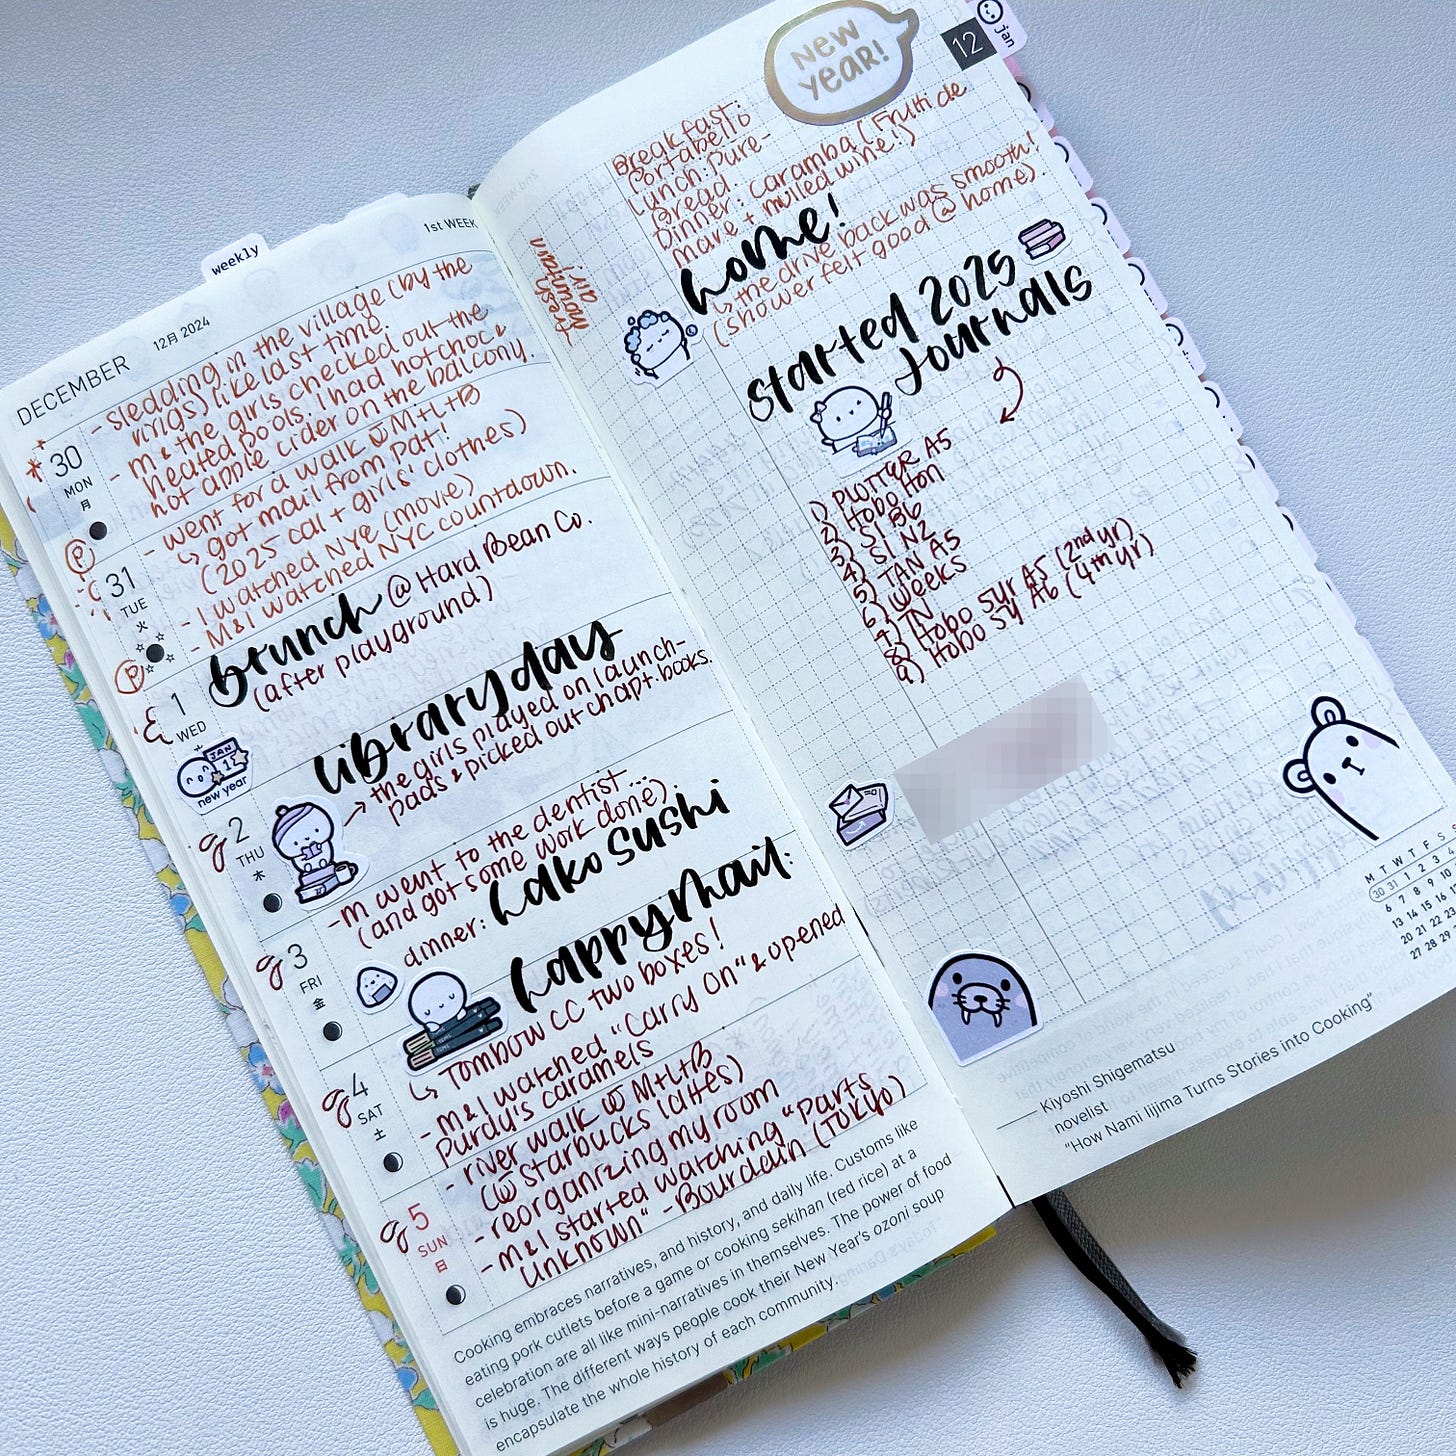 weekly
1st WEEK
DECEMBER 12月 2024
30
MON
月
- sledding in the village (by the
rings) like last time.
- M & the girls checked out the
heated pools. I had hot choc &
hot apple cider on the balcony.
P
31
TUE
火
- went for a walk w M+L+B
↳ got mail from Pat!
(2025 cal + girls' clothes)
- I watched NYE (movie)
M&I watched NYC countdown.
P
1
WED
JAN
1
new year
brunch @ Hard Bean Co.
(after playground)
2
THU
木
library day
→ the girls played on launch-
pads & picked out chapt. books.
3
FRI
金
- M went to the dentist...
(and got some work done).
dinner: Lako Sushi
4
SAT
土
happy mail:
↳ Tombow CC two boxes!
- M&I watched "Carry On" & opened
Purdy's caramels
5
SUN
日
- river walk w M+L+B
(w Starbucks lattes)
- reorganizing my room
- M&I started watching "Parts
Unknown" - Bourdain (Tokyo)
Cooking embraces narratives, and history, and daily life. Customs like
eating pork cutlets before a game or cooking sekihan (red rice) at a
celebration are all like mini-narratives in themselves. The power of food
is huge. The different ways people cook their New Year's ozoni soup
encapsulate the whole history of each community.
jan
12
NEW
YEAR!
Breakfast:
Portabello
Lunch: Pure-
Bread.
Dinner: Caramba (Frutti de
Mare + mulled wine!)
fresh
mountain
air
home!
↳ the drive back was smooth!
(shower felt good @ home).
started 2025
Journals
1) PLOTTER A5
2) Hobo Hon
3) S1 B6
4) S1 N2
5) TAN A5
6) Weeks
7) TN
8) Hobo 5yr A5 (2nd yr)
9) Hobo 5y A6 (4th yr)
M T W T F S
30 31 1 2 3 4
6 7 8 9 10
13 14 15 16
20 21 22 23
27 28 29
— Kiyoshi Shigematsu
novelist
"How Nami Iijima Turns Stories into Cooking"